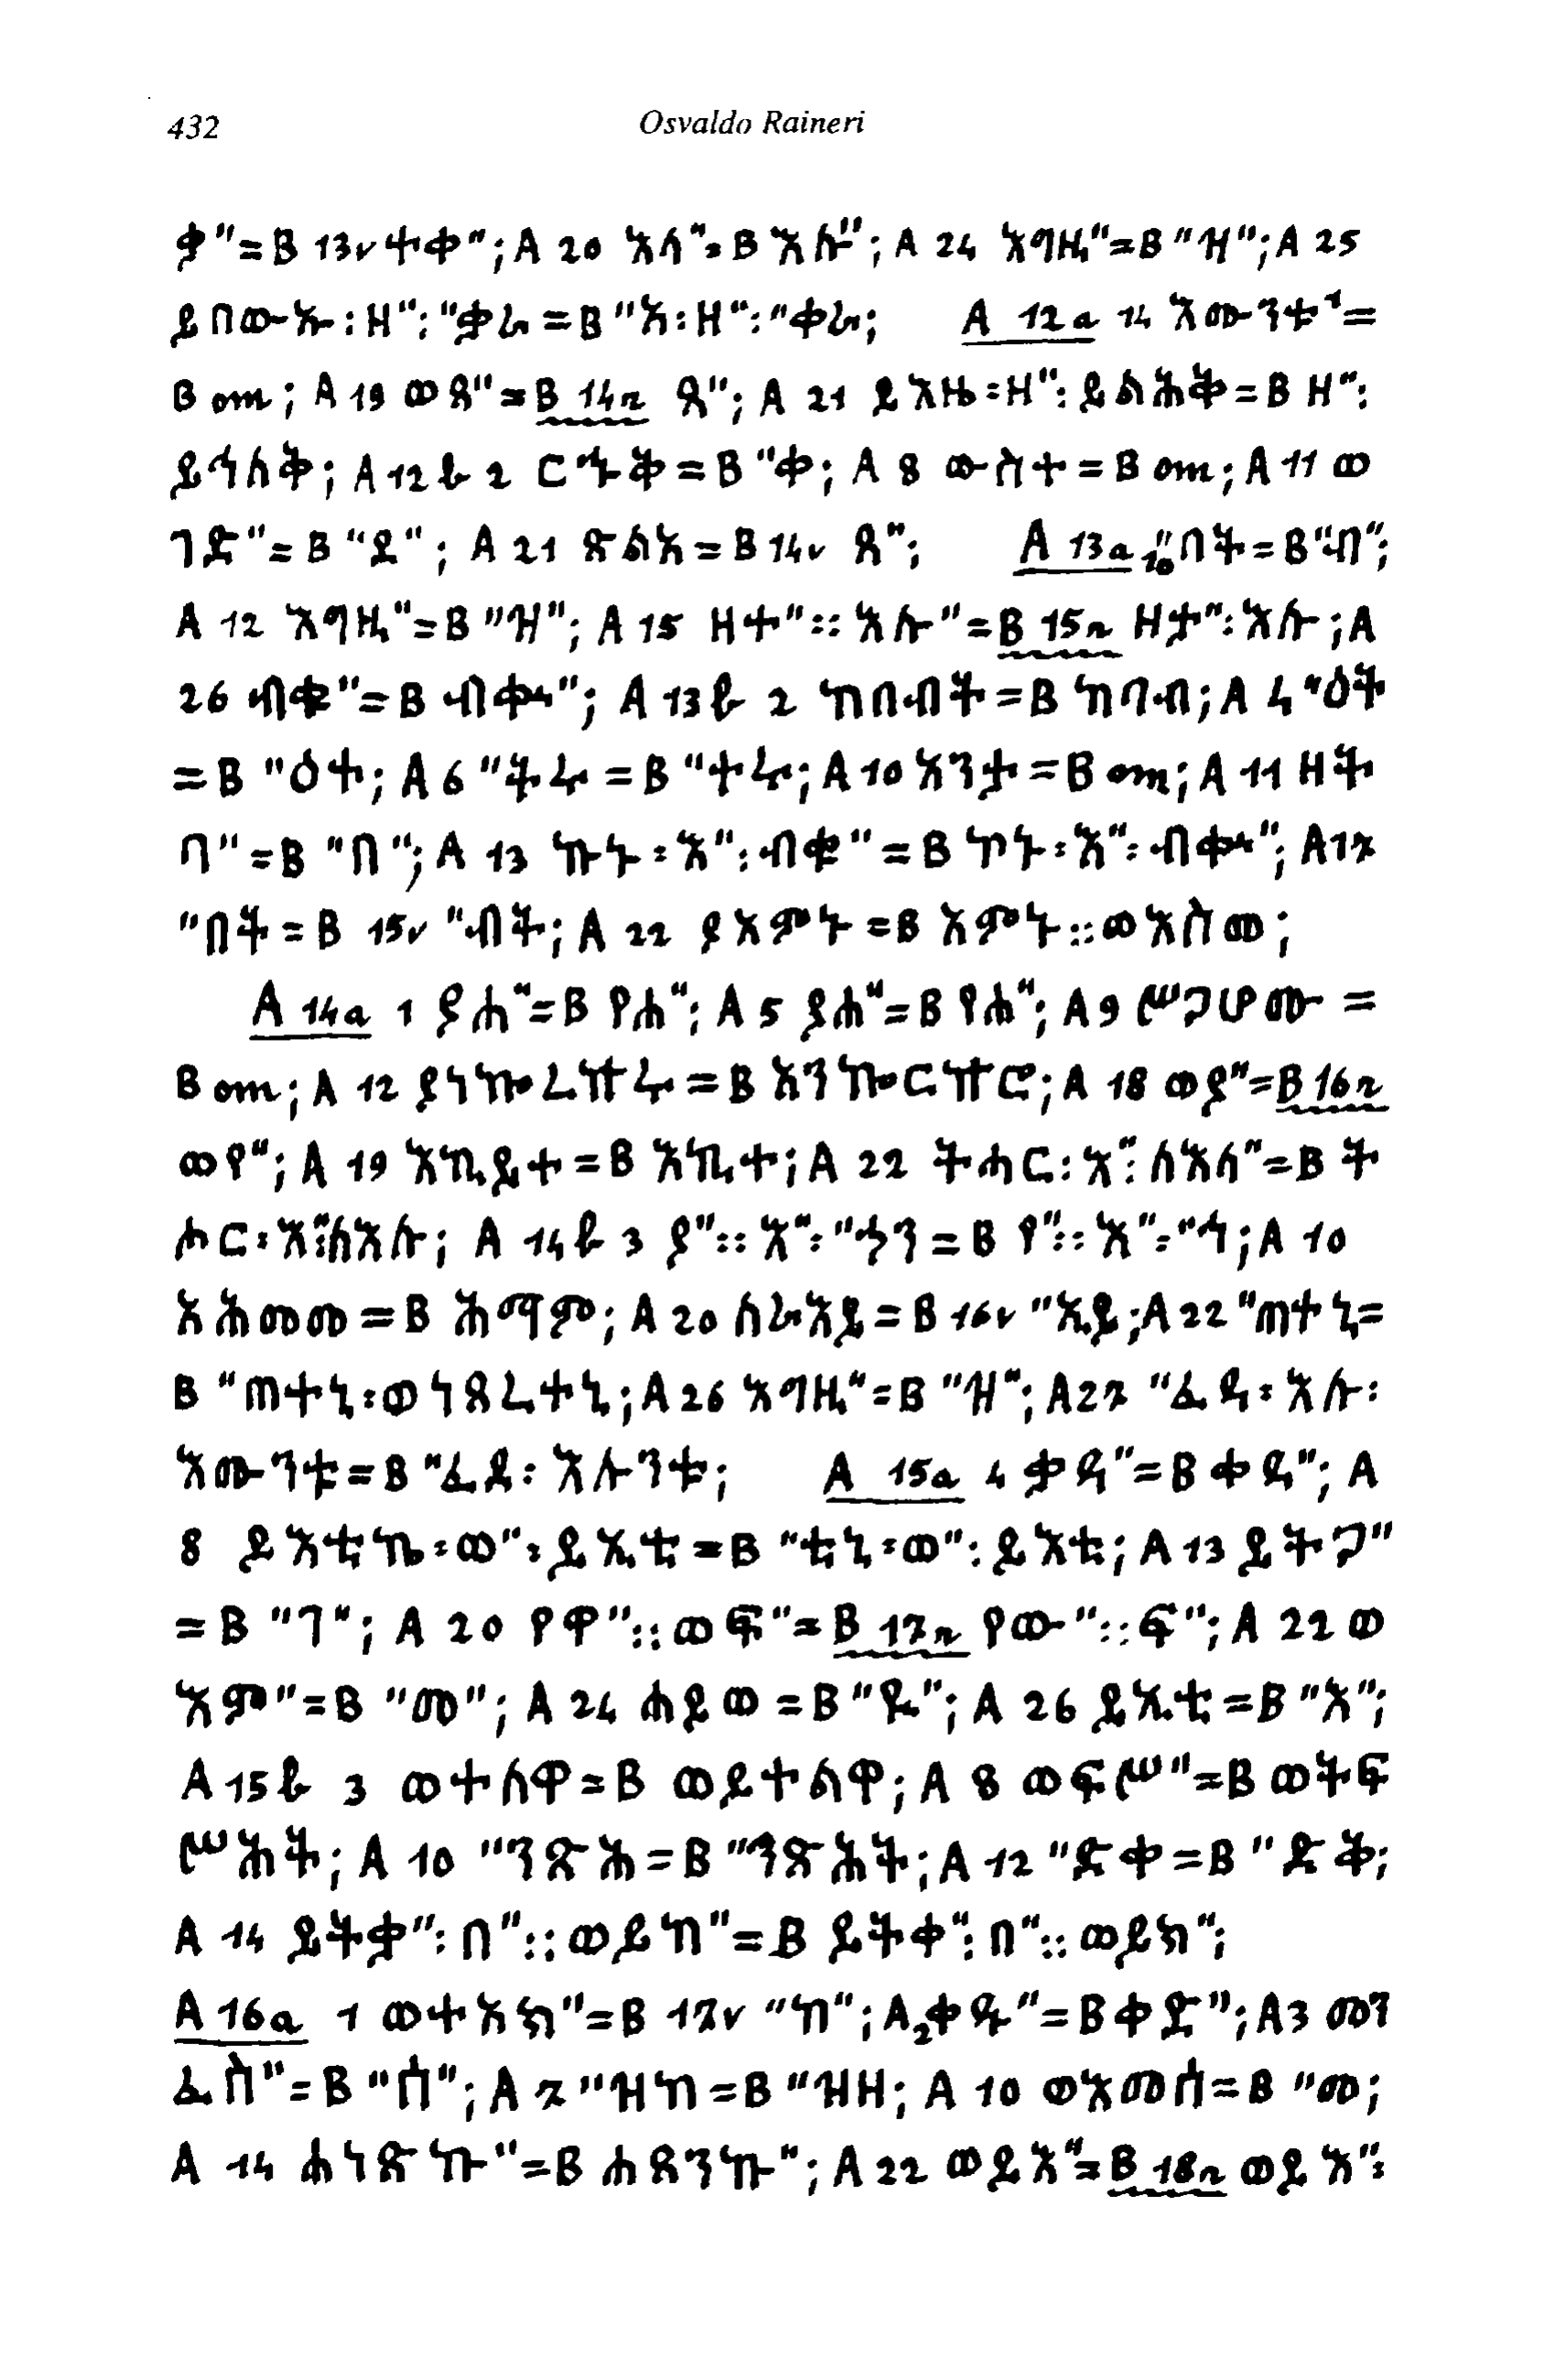 432 Osvaldo Raineri
ቃ"=B 13v ተቀ"; A 20 እለ"=B እሉ"; A 24 እግዚ"=B "ዝ"; A 25
ይበውኡ : ዘ": "ቃራ = B "አ : ዘ": "ቀራ; A 12a 14 እሙንቱ¹=
B om; A 19 ወጸ"=B 14r ጸ"; A 21 ይእዜ : ዘ": ይልሕቅ = B ዘ":
ይኅለቅ; A 12b 2 ርኁቅ = B "ቀ; A 8 ውስተ = B om; A 11 ወ
ገድ"= B "ደ"; A 21 ጽልአ = B 14v ጸ"; A 13a 10 "በት = B "ብ";
A 12 እግዚ"=B "ዝ"; A 15 ዘተ":: እሉ"=B 15r ዘታ": እሉ; A
26 ብቊ"=B ብቍዓ"; A 13b 2 ከበብት = B ከባብ; A 4 "ዕት
= B "ዕተ; A 6 "ትሬ = B "ተሬ; A 10 አንታ = B om; A 11 ዘት
ባ" = B "በ"; A 13 ኩኑ : እ": ብቊ" = B ኮኑ : እ": ብቍዓ"; A 17
"በት = B 15v "ብት; A 22 ያአምኑ = B አምኑ :: ወአስመ;
A 14a 1 ያሐ"= B የሐ"; A 5 ያሐ"= B የሐ"; A 9 ሠጋሆሙ =
B om; A 12 ያነኰረኵሬ = B አንኰርኵሮ; A 18 ወያ"= B 16r
ወየ"; A 19 እኪይተ = B እኪተ; A 22 ትሐር : እ": ለእለ"= B ት
ሐር : እ": ለእሉ; A 14b 3 ያ":: እ": "ኃን = B የ":: እ": "ኅ; A 10
አሕመመ = B ሕማም; A 20 ስራእይ = B 16v "ኢይ; A 22 "ጠተኒ=
B "ጠተኒ : ወነጸረተኒ; A 26 እግዚ"= B "ዝ"; A 27 "ፈዳ : እሉ :
እሙንቱ = B "ፈደ : እሉንቱ; A 15a 4 ቃዳ"= B ቀዳ"; A
8 ይእቲኬ : ወ": ይኢቲ = B "ቲኒ : ወ": ይእቲ; A 13 ይትጋ"
= B "ገ"; A 20 የዋ":: ወፍ"= B 17r የው":: ፍ"; A 22 ወ
እም"= B "መ"; A 24 ሐይወ = B "ዩ"; A 26 ይኢቲ = B "እ";
A 15b 3 ወተለዋ = B ወይተልዋ; A 8 ወፍሠ"= B ወትፍ
ሠሕት; A 10 "ንጽሕ = B "ንጽሕት; A 12 "ድቀ = B "ድቅ;
A 14 ይትቃ": በ":: ወይከ"= B ይትቀ": በ":: ወይክ";
A 16a 1 ወተአክ"= B 17v "ከ"; A 2 ቀዱ"= B ቀድ"; A 3 መን
ፈስ"= B "ሰ"; A 7 "ዝከ = B "ዝዘ; A 10 ወእመሰ = B "መ;
A 14 ሐነጽኩ"= B ሐጸንኩ"; A 22 ወይእ"= B 18r ወይእ":